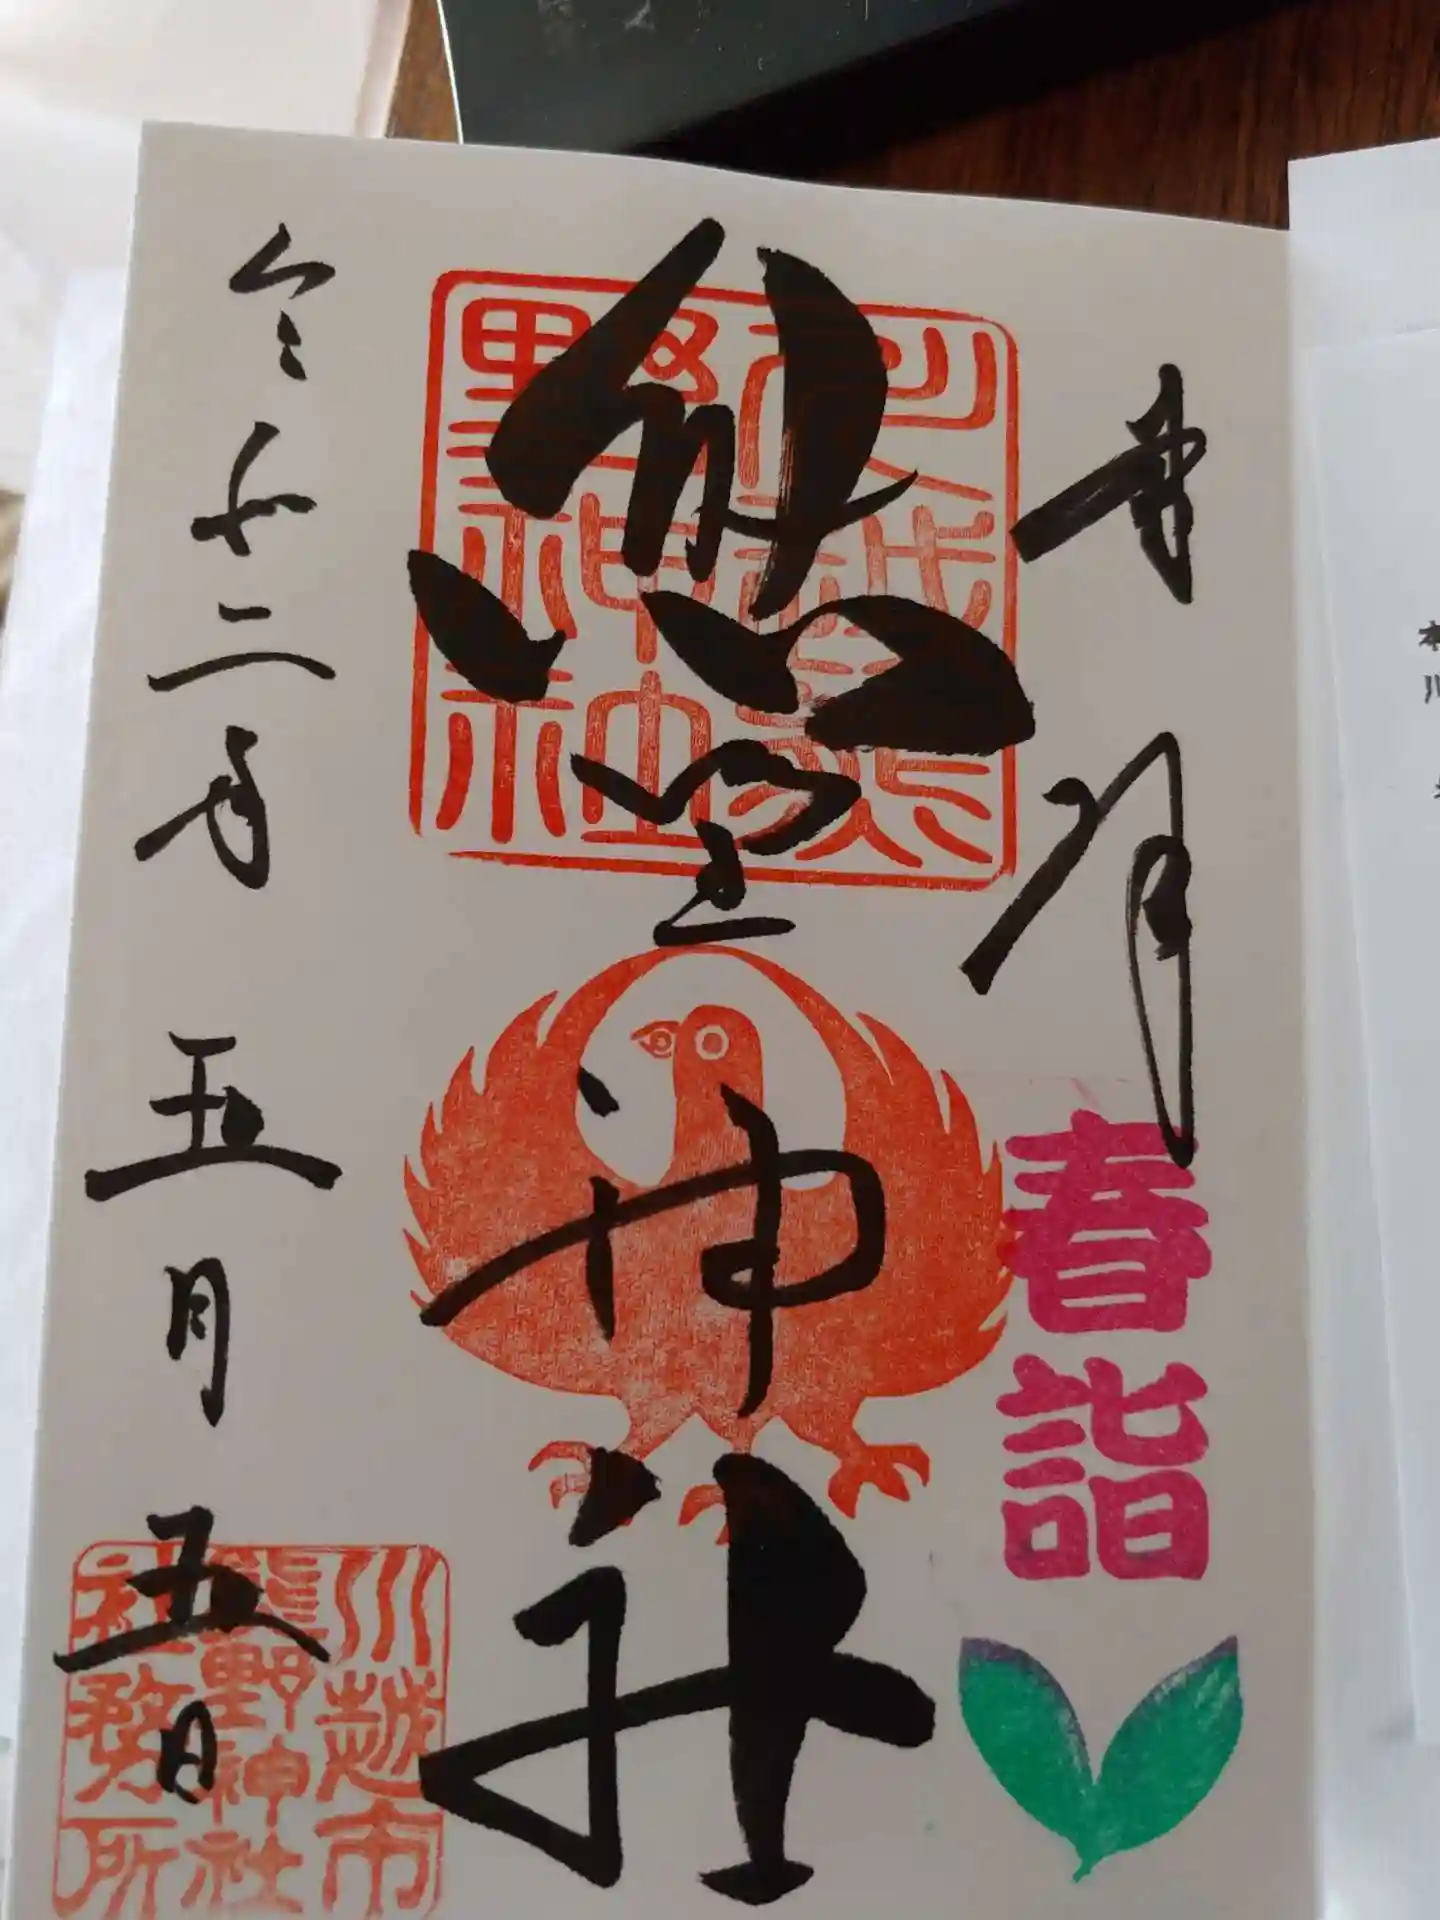 奉拝
春詣
熊野神社
川越熊
野神社
令和二年五月五日
川越市
熊野神社
社務所